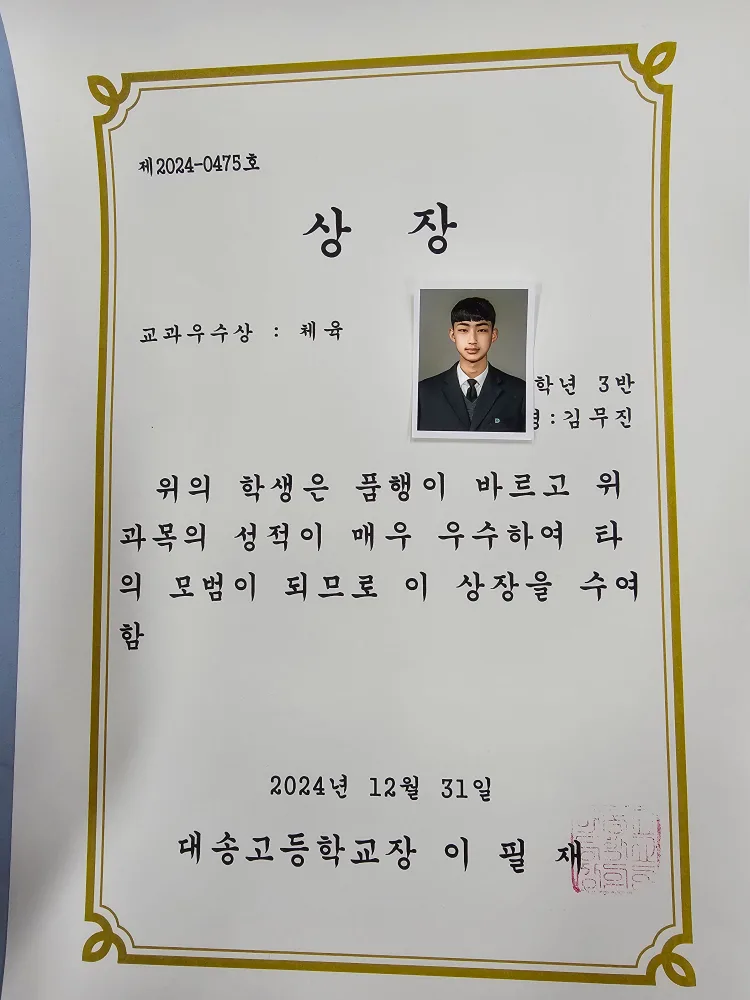 제2024-0475호
상 장
교과우수상 : 체육
학년 3반
명:김무진
위의 학생은 품행이 바르고 위
과목의 성적이 매우 우수하여 타
의 모범이 되므로 이 상장을 수여
함
2024년 12월 31일
대송고등학교장 이 필 재